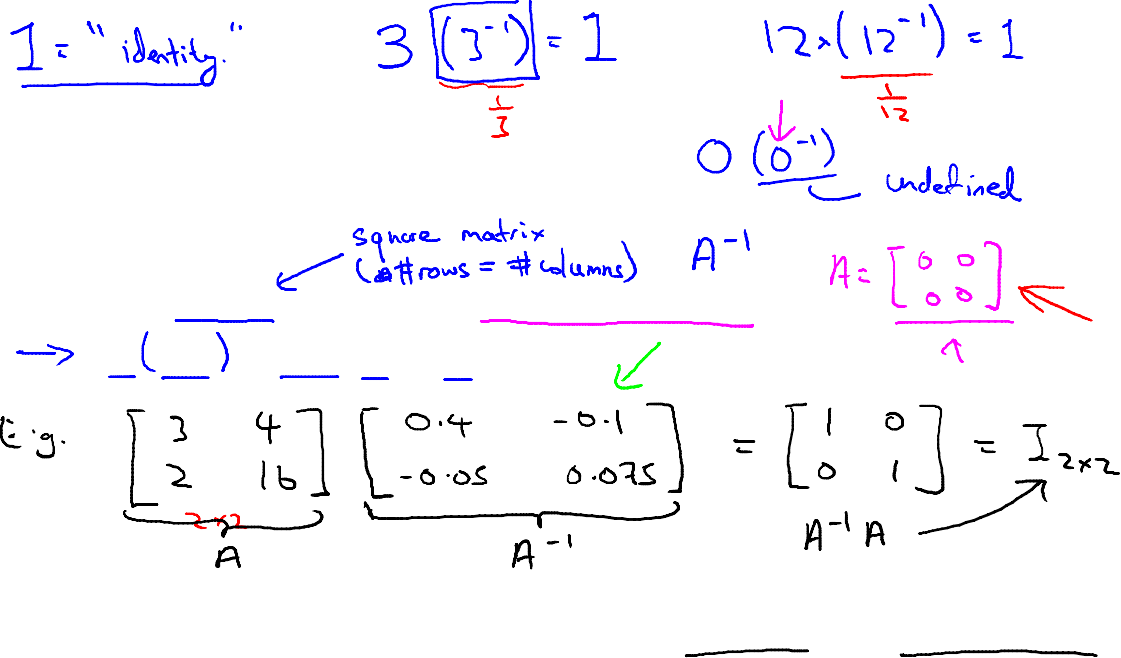 1 = "identity." 3 (3⁻¹) = 1 12 × (12⁻¹) = 1
1/3 1/12
0 (0⁻¹) undefined
square matrix
(#rows = #columns) A⁻¹ A = [0 0; 0 0]
→ _(__) __ _ _
E.g. [3 4; 2 16] [0.4 -0.1; -0.05 0.075] = [1 0; 0 1] = I₂ₓ₂
2×2
A A⁻¹ A⁻¹A